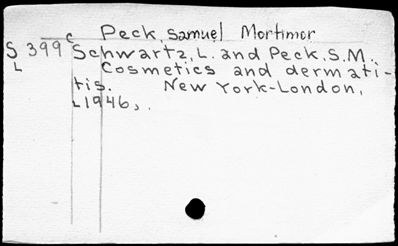 c Peck, Samuel Mortimer
S 399 Schwartz, L. and Peck, S.M.
L Cosmetics and dermati-
tis. New York-London,
1946,.